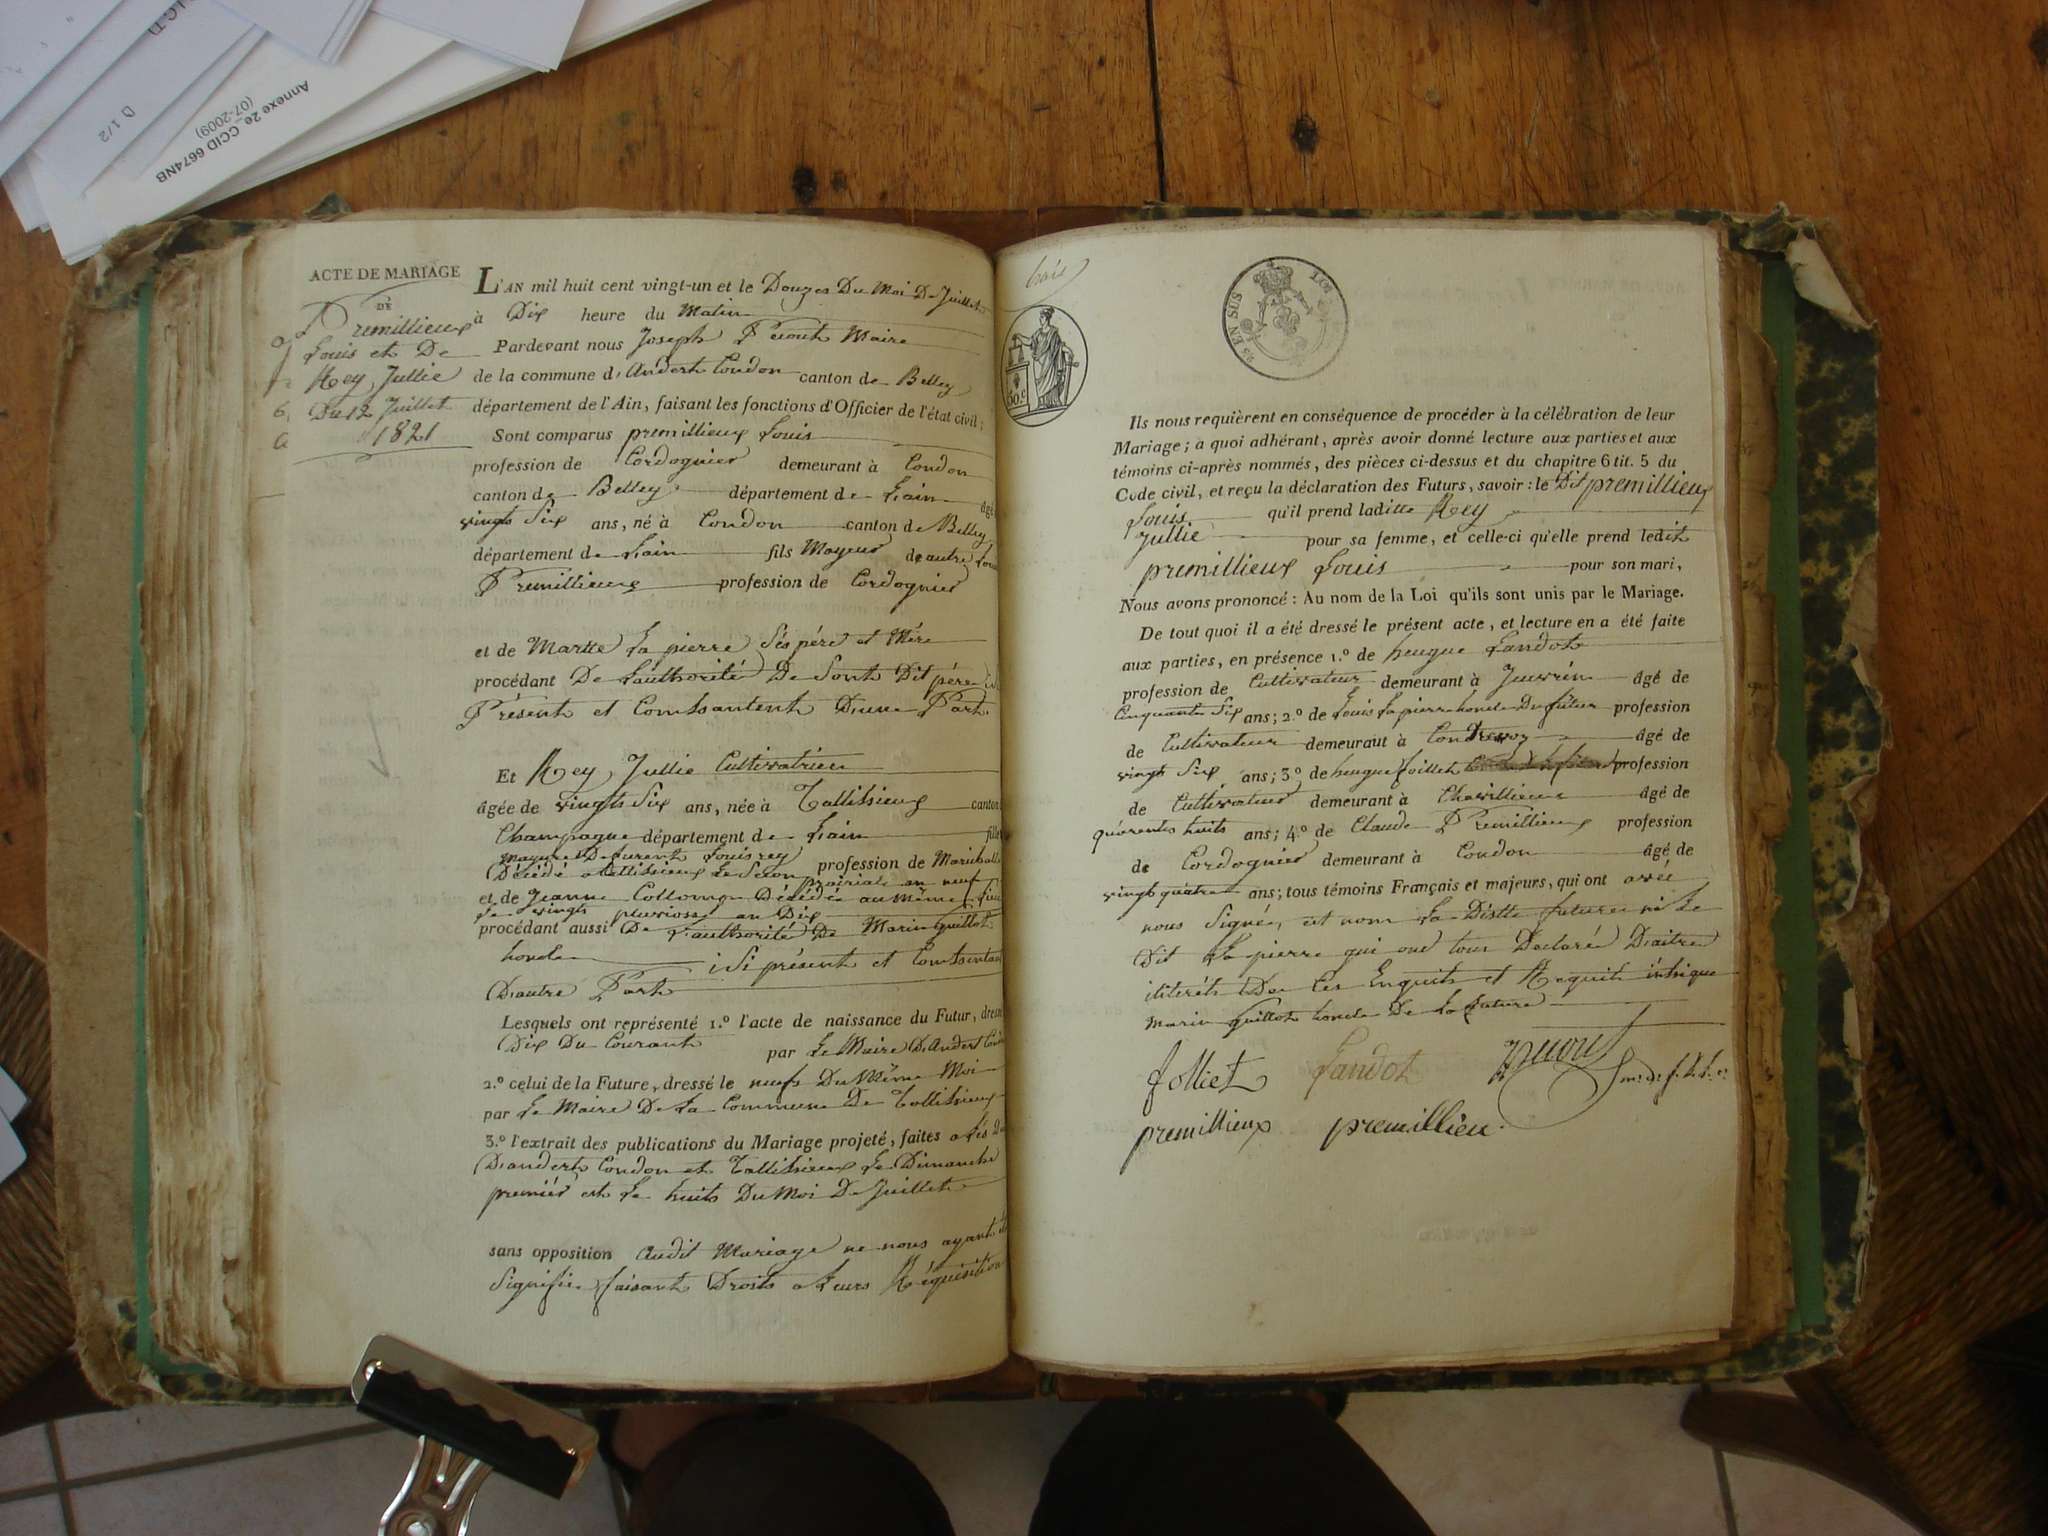 I.C.TI
D 1/2
Annexe 2e_CCID 6674NB
(07-2009)
ACTE DE MARIAGE
DE
Premillieux
Louis et De
Rey Jullie
Du 12 Juillet
1821
L'AN mil huit cent vingt-un et le Douzes Du Moi De Juillet
à Dix heure du Matin
Pardevant nous Joseph Maire
de la commune d'Andert Condon canton de Belley
département de l'Ain, faisant les fonctions d'Officier de l'état civil;
Sont comparus premillieux Louis
profession de Cordognier demeurant à Condon
canton de Belley département de Lain âgé
vingts Six ans, né à Condon canton de Belley
département de Lain fils Mayeur de autre Loui
Premillieux profession de Cordognier
et de Martte La pierre Sés pére et Mére
procédant De Lauthorité De Sont Dit pére
Présent et Comtsantent D'une Part
Et Rey Jullie Cultivatrice
âgée de vingts Six ans, née à Tallissieux canton
Champagne département de Lain fille
mayure De furent Louis rey profession de Marichalle
Décédé a tallissieux Le Secon prairial an neuf
et de Jeanne Collomon Décédée au même Lieu
Le vingts pluviose an Dix
procédant aussi De L'authorité De Marin guillot
honcle isi présent et Comtsentant
D'autre Part
Lesquels ont représenté 1.º l'acte de naissance du Futur, dressé
Dix Du Courant par Le Maire D'Andert Condon
2.º celui de la Future, dressé le neufs Du Même Moi
par Le Maire De La Commune De Tallissieux
3.º l'extrait des publications du Mariage projeté, faites a Lés
D'andert Condon et Tallissieux Le Dimanche
premiér et Le huits Du Moi De Juillet
sans opposition audit Mariage ne nous ayant été
Signifie faisant Droits a Leurs Réquisition
50.c
EN SUS
LOI
Ils nous requièrent en conséquence de procéder à la célébration de leur
Mariage; à quoi adhérant, après avoir donné lecture aux parties et aux
témoins ci-après nommés, des pièces ci-dessus et du chapitre 6 tit. 5 du
Code civil, et reçu la déclaration des Futurs, savoir: le Dit premillieux
Louis qu'il prend laditte Rey
Jullie pour sa femme, et celle-ci qu'elle prend ledit
premillieux Louis pour son mari,
Nous avons prononcé: Au nom de la Loi qu'ils sont unis par le Mariage.
De tout quoi il a été dressé le présent acte, et lecture en a été faite
aux parties, en présence 1.º de heugue Landot
profession de Cultivateur demeurant à âgé de
Cinquante Six ans; 2.º de Louis La pierre honcle Du futur profession
de Cultivateur demeurant à âgé de
vingts Six ans; 3.º de heugue folliet profession
de Cultivateur demeurant à Chavillieux âgé de
quarentes huits ans; 4.º de Claude Premillieux profession
de Cordognier demeurant à Condon âgé de
vingts quatre ans; tous témoins Français et majeurs, qui ont avéc
nous Signér, et nom La Ditte future ni Le
Dit La pierre qui ont tous Declaré D'aitre
iliterés De Ces Enquits et Requits
Marin guillot honcle De La future
folliet Landot
premillieux premillieu